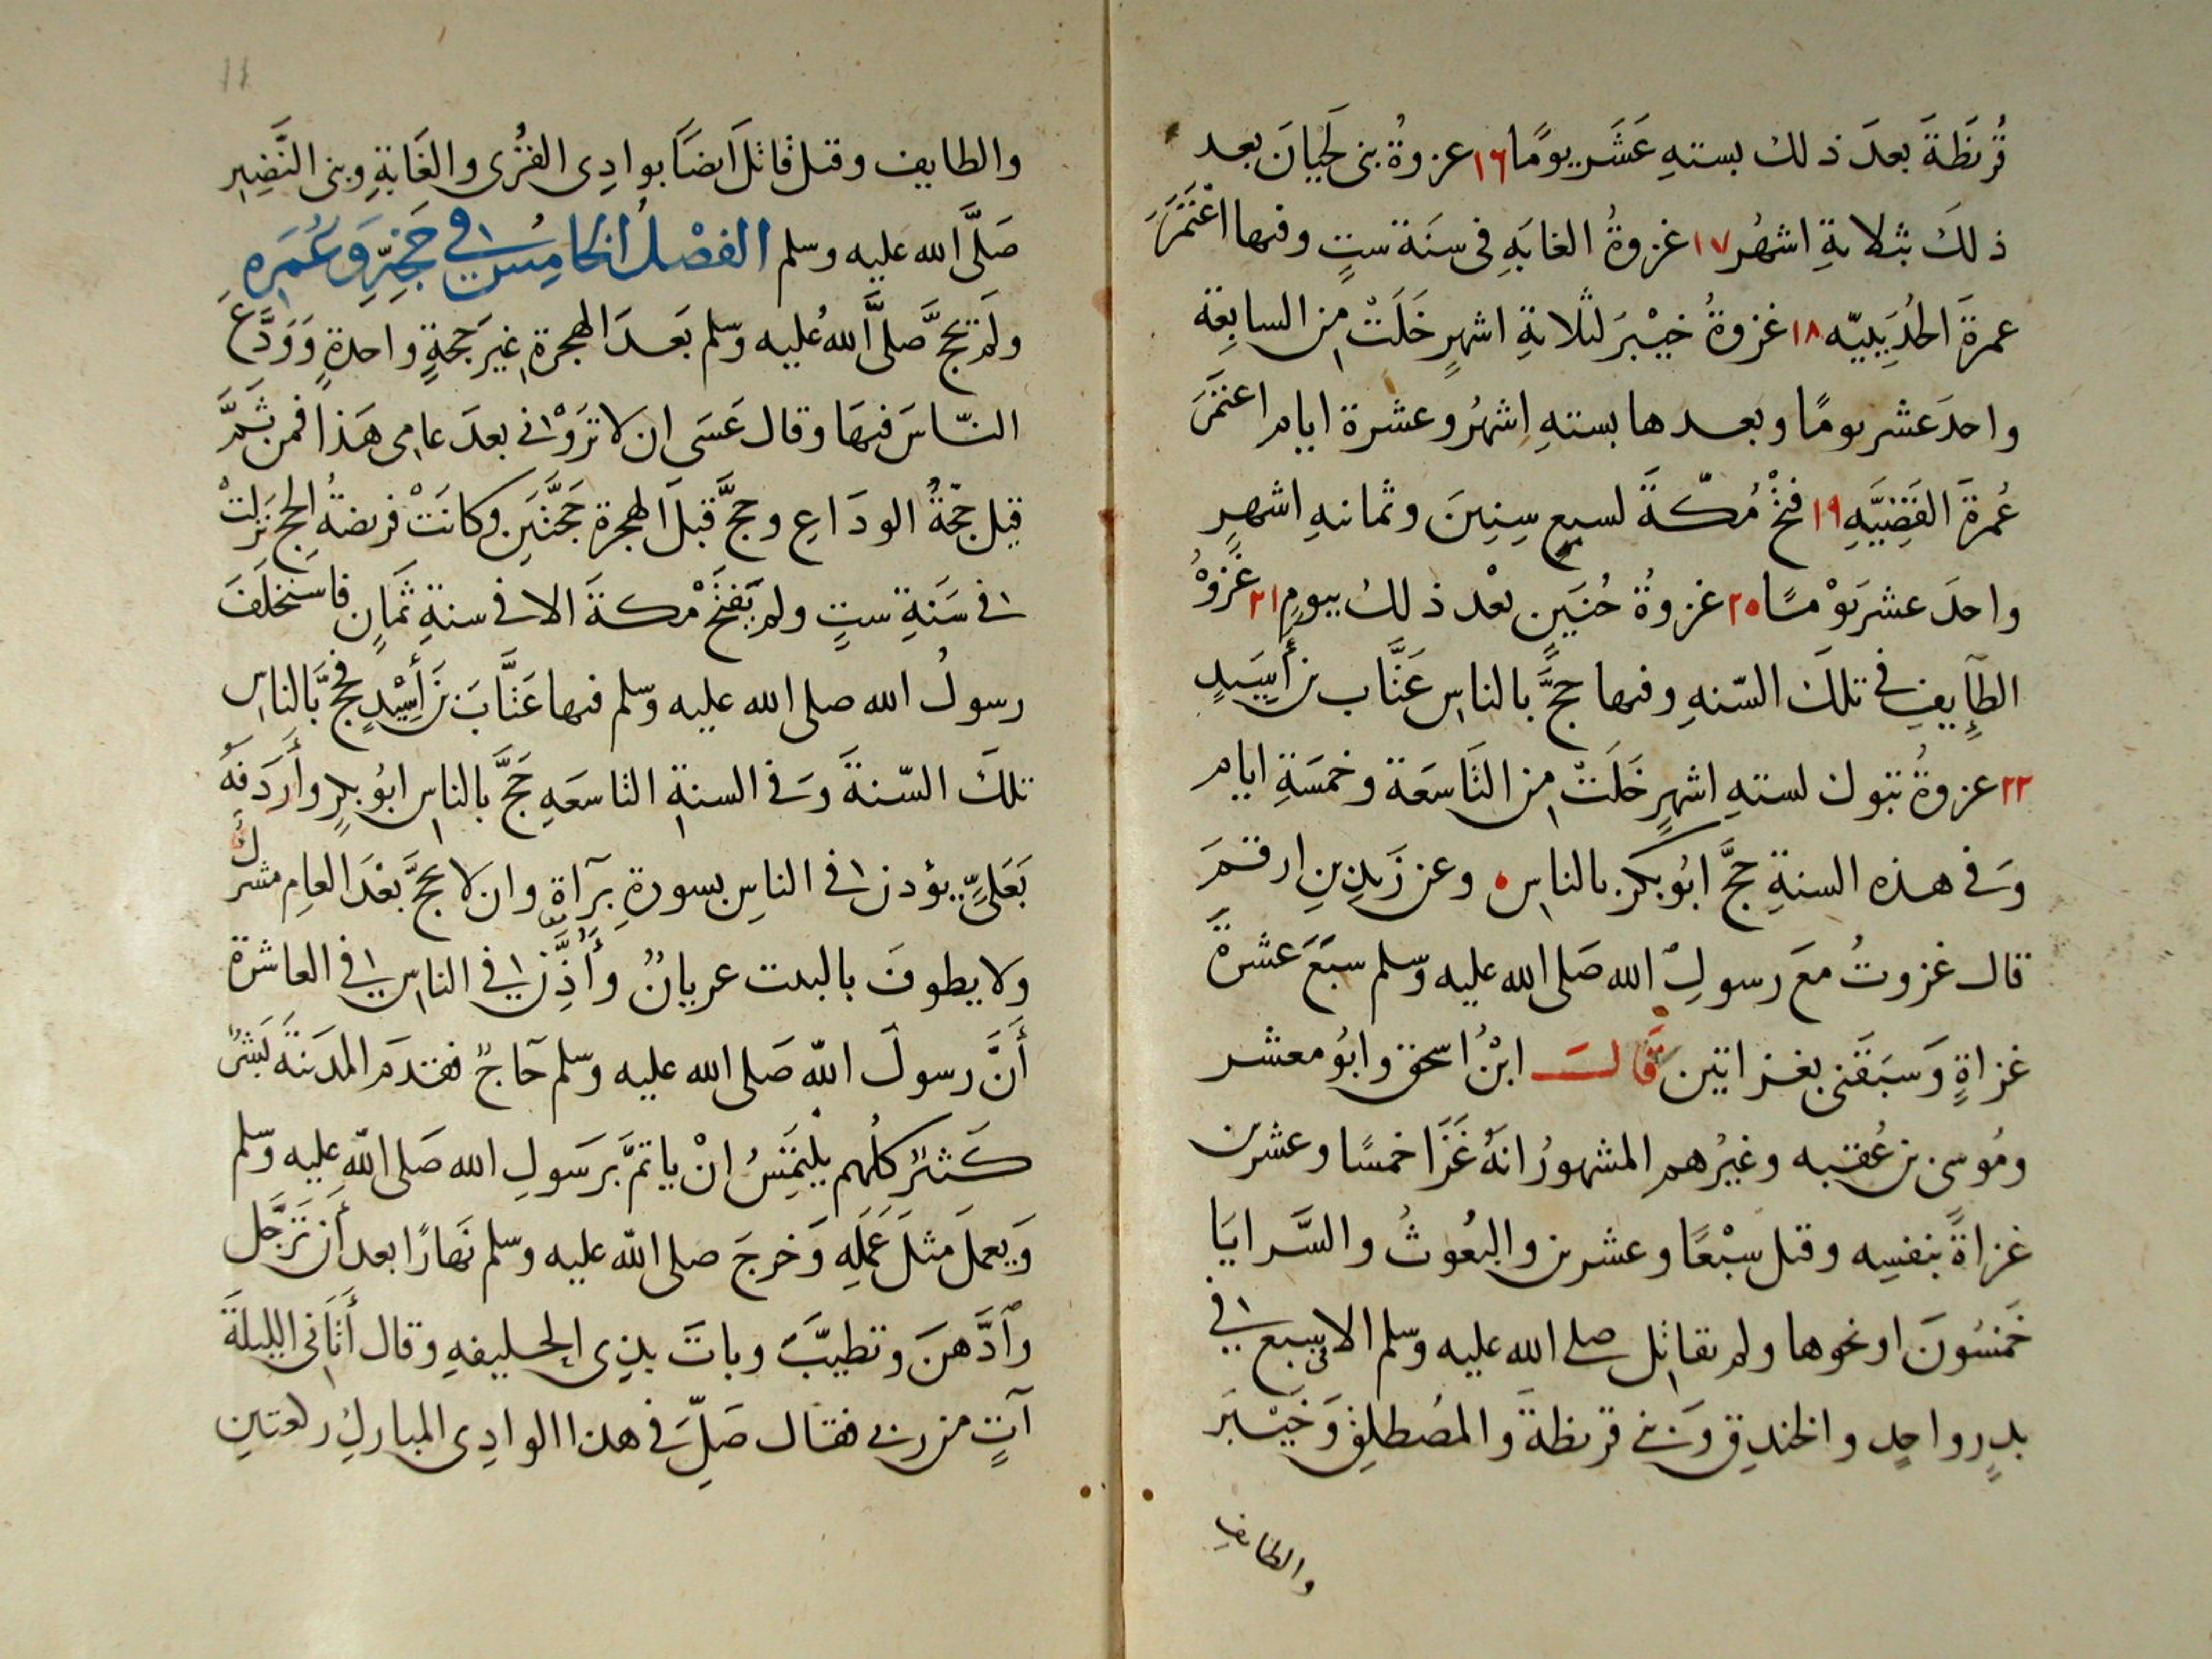 قُرَيظَةَ بعدَ ذلك بستهِ عَشَر يومًا ١٦ غزوةُ بنى لَحْيانَ بعد
ذلكَ بثلاثةِ اشهُر ١٧ غزوةُ الغابَةِ فى سنَة ستٍ وفيها اعْتَمَرَ
عمرةَ الحُدَيبيّه ١٨ غزوةُ خيْبرَ لثلاثةِ اشهرٍ خَلَتْ من السابِعة
واحدَ عشر يومًا وبعدها بستهِ اشهُر وعشرة ايام اعتمَرَ
عُمرةَ القَضِيَّهِ ١٩ فتحُ مكّةَ لسبعِ سِنِينَ وثمانيهِ اشهرٍ
واحدَ عشر يَوْمًا ٢٠ غزوةُ حُنَينٍ بعْد ذلكُ بيومٍ ٢١ غَزوةُ
الطآيِفِ فى تلكَ السّنهِ وفيها حجَّ بالناسِ عَتَّاب بن أَسِيَدٍ
٢٢ غزوةُ تبوك لستهِ اشهرٍ خَلَتْ من التَّاسَعَة وخمسَةِ ايام
وَفى هذه السنةِ حجَّ ابُو بكرٍ بالناسِ وعن زَيدِ بنِ ارقمَ
قال غزوتُ معَ رسولِ الله صَلى الله عليه وسلم سبَعَ عشرةَ
غزاةٍ وَسَبقَنى بغزاتين قَالَ ابْنُ اسحق وابوُ معشر
ومُوسى بن عُقبه وغيرُهم المشهورُ انهُ غَزَا خمسًا وعشرين
غزاةً بنفسِه وقيل سبْعًا وعشرين والبُعُوثُ والسَّرايَا
خَمسُونَ او نحوها ولم يقاتِل صلى الله عليه وسلم الا فى سبع فى
بدرٍ واحدٍ والخندقِ وَبَنى قريظةَ والمصُطلِقِ وَخَيْبَرَ
والطايفِ
والطايفِ وقيل قاتلَ ايضَا بوادِى القُرَى والغَابةِ وبنى النَّضِيرِ
صَلَّى الله عليه وسلم الفصْلُ الخامِسُ فى حَجّهِ وَعُمَرِهِ
ولَم يحجَّ صَلَّى اللهُ عليه وسلم بَعدَ الهجرةِ غيرَ حجّةٍ واحدةٍ وَوَدَّعَ
النّاسَ فيهَا وقال عَسَى ان لا تَرَوْنى بعدَ عامى هَذا فمن ثَمَّ
قيل حَجّةُ الودَاعِ وحجَّ قبلَ الهجرة حَجَّتَين وكانَتْ فريضةُ الحجِ نزلتْ
فى سَنَةِ ستٍ ولم يَفتَحْ مكةَ الا فى سنةِ ثَمانٍ فاستخلَفَ
رسولُ الله صلى الله عليه وسلم فيها عَتَّابَ بن أَسِيْدٍ فحجَّ بالناسِ
تلكَ السّنةَ وَفى السنةِ التاسعَهِ حَجَّ بالناسِ ابوُ بكرٍ وأَردَفهُ
بعَلىٍّ يؤذن فى الناسِ بسورةِ بَرآةٍ وان لا يحجَّ بعْدَ العامِ مشركٌ
ولا يطوفَ بالبيت عريانٌ وأُذِّن فى الناسِ فى العاشرة
أَنَّ رسولَ اللّه صَلى الله عليه وسلم حَاجٌّ فقدمَ المدَينَةَ بَشرٌ
كَثيْرٌ كلُهم يلتمَسُ انْ ياتمَّ بِرَسَولِ الله صَلى اللّه عليه وسلم
وَيعملَ مثلَ عَملِهِ وَخرجَ صلى اللّه عليه وسلم نَهارًا بعد أن تَرَجَّل
وَادَّهنَ وتطيبَّ وباتَ بذِى الحُليفهِ وقال أتَانى الليلةَ
آتٍ من ربى فقال صَلِّ فى هذا الوادِى المباركِ ركعتينِ